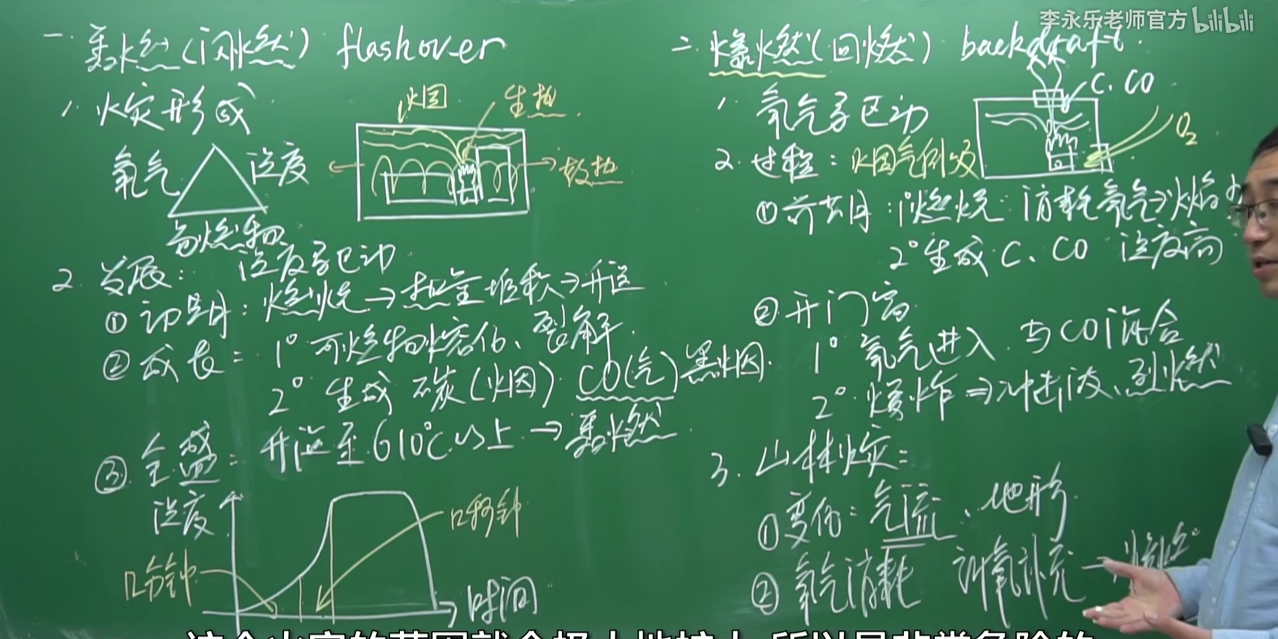 李永乐老师官方 bilibili
一. 轰燃(闪燃) flashover
1. 火灾形成
氧气 温度
可燃物
火因 生热
散热
2. 发展: 温度驱动
① 初期: 燃烧→热量堆积→升温
② 成长: 1° 可燃物熔化、裂解
2° 生成 碳(火因) CO(气) 黑火因
③ 全盛: 升温至610℃以上→轰燃
温度
几分钟
几秒钟
时间
二. 爆燃(回燃) backdraft
1. 氧气驱动
C. CO
O₂
2. 过程: 火因气倒吸
① 前期: 1°燃烧 消耗氧气→火焰小
2°生成 C、CO 温度高
② 开门窗
1° 氧气进入 与CO混合
2° 爆炸⇒冲击波、烈燃
3. 山林火灾:
① 变化: 气流、地形
② 氧气消耗 新氧补充→爆燃